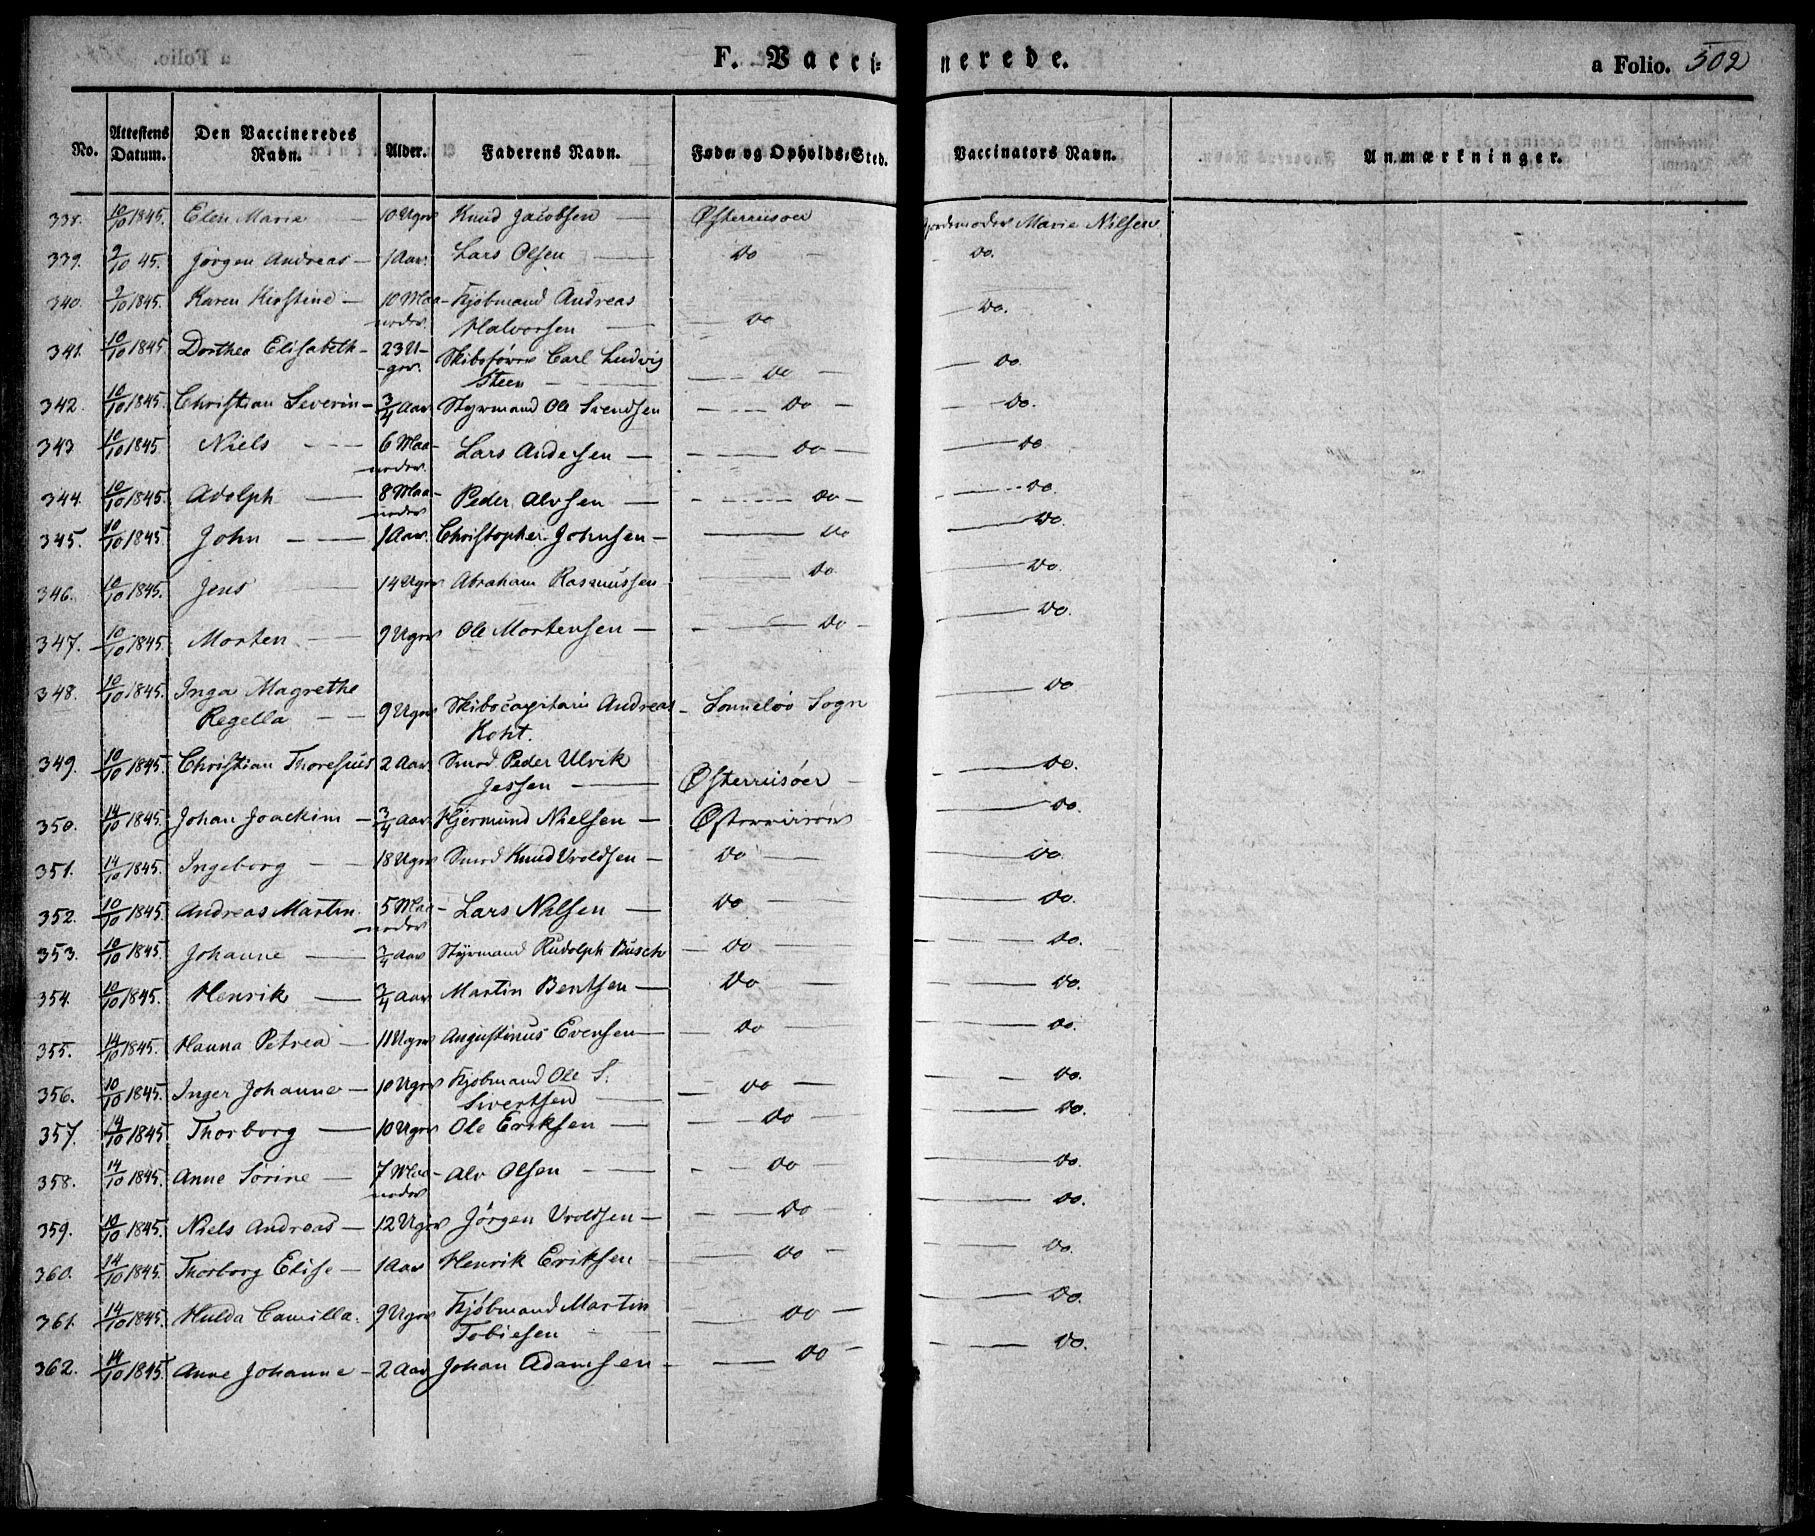 F. Vacci=nerede.
a Folio. 502
No. Attestens Datum. Den Vaccineredes Navn. Alder. Faderens Navn. Føde= og Opholds=Sted. Vaccinators Navn. Anmærkninger.
338. 10/10 1845. Elen Marie — 10 Uger Knud Jacobsen — Østerriisøer Jordemoder Marie Nilsen
339. 9/10 45. Jørgen Andreas — 1 Aar. Lars Olsen — Do — Do.
340. 9/10 1845. Karen Kirstine — 10 Maa- Kjøbmand Andreas
neder. Halvorsen — Do — Do.
341. 10/10 1845 Dorthea Elisabeth — 23 U- Skibsfører Carl Ludvig
-ger. Steen — Do — Do.
342. 10/10 1845. Christian Severin — 3/4 Aar Styrmand Ole Svendsen — Do — Do.
343 10/10 1845 Niels — 6 Maa- Lars Andersen — Do — Do
neder.
344. 10/10 1845. Adolph — 8 Maa- Peder Alvsen — Do — Do.
neder
345. 10/10 1845 John — 1 Aar. Christopher Johnsen — Do — Do.
346. 10/10 1845. Jens 14 Uger Abraham Rasmussen — Do — Do.
347. 10/10 1845. Morten — 9 Uger Ole Mortensen — Do — Do.
348. 10/10 1845. Inga Magrethe
Regella — 9 Uger Skibscapitain Andreas — Sønneløv Sogn — Do
Koht.
349. 10/10 1845. Christian Thoresius 2 Aar. Smed Peder Ulrik
Jessen — Østerriisøer — Do.
350. 14/10 1845. Johan Joackim — 3/4 Aar Hjermund Nielsen — Østerriisøer — Do.
351. 14/10 1845. Ingeborg — 18 Uger Smed Knud Uroldsen — Do — Do.
352. 10/10 1845 Andreas Martin. 5 Maa- Lars Nilsen — Do — Do.
neder
353. 10/10 1845. Johanne — 3/4 Aar Styrmand Rudolph Busch Do — Do.
354. 10/10 1845. Henrik — 3/4 Aar Martin Bentsen — Do — Do.
355. 14/10 1845. Hanna Petrea — 11 Uger Augustinus Evensen — Do — Do.
356. 10/10 1845. Inger Johanne — 10 Uger Kjøbmand Ole S.
Sivertsen — Do — Do.
357. 14/10 1845 Thorborg — 10 Uger Ole Eriksen — Do — Do.
358. 14/10 1845. Anne Sørine — 7 Maa- Alv Olsen — Do — Do.
neder
359. 10/10 1845. Niels Andreas — 12 Uger Jørgen Uroldsen — Do — Do.
360. 14/10 1845. Thorborg Elise — 1 Aar Henrik Eriksen — Do — Do.
361. 14/10 1845. Hulda Camilla. 9 Uger Kjøbmand Martin
Tobiesen — Do — Do.
362. 14/10 1845. Anne Johanne — 2 Aar Johan Adamsen — Do — Do.